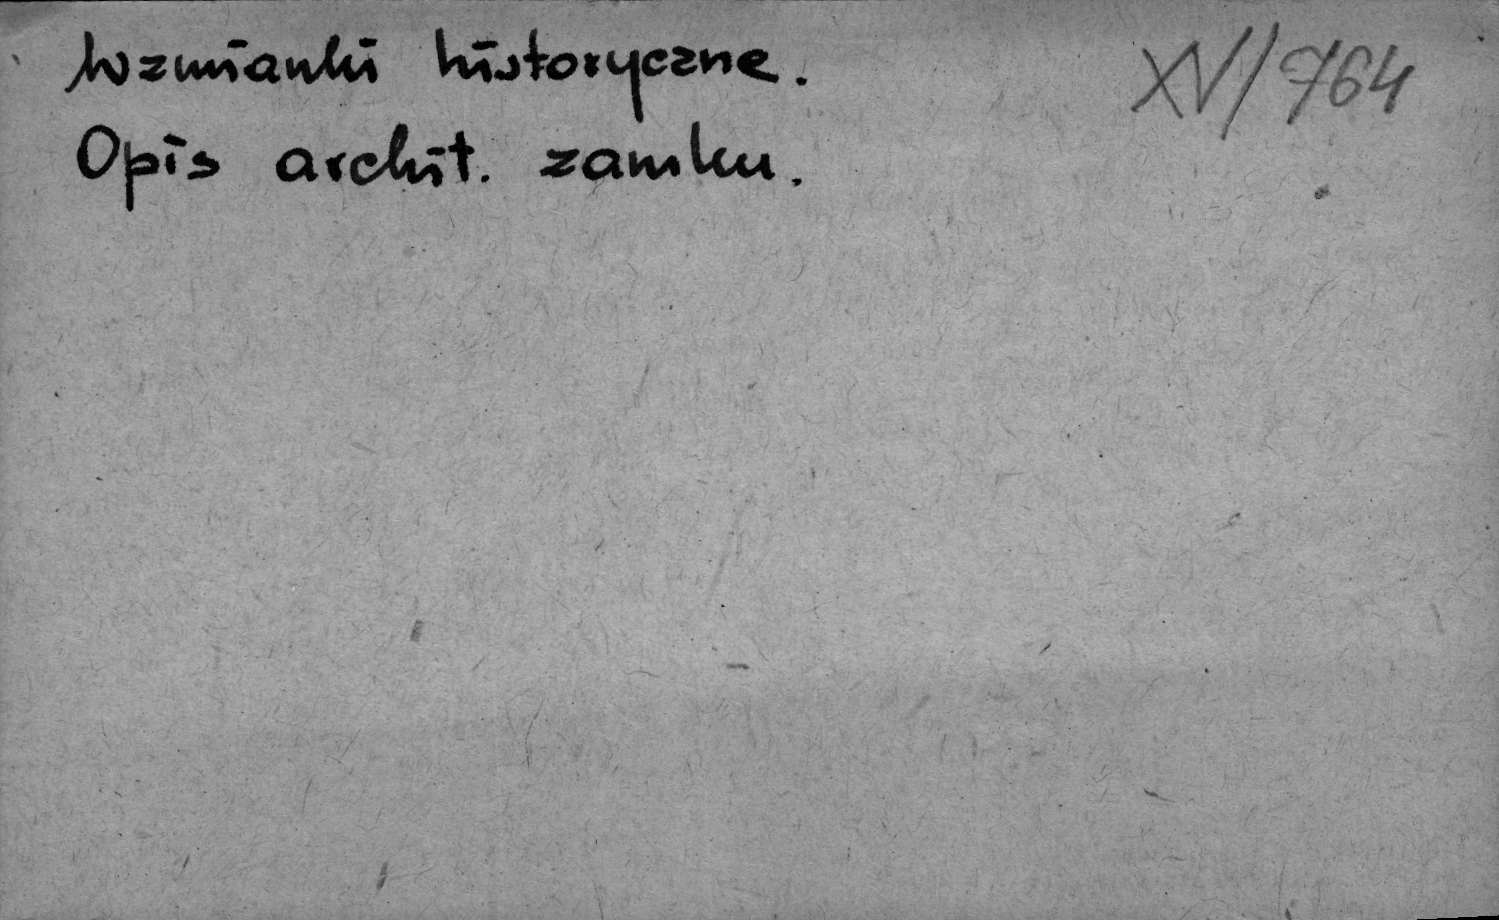 Wzmianki historyczne.
XV/764
Opis archit. zamku.